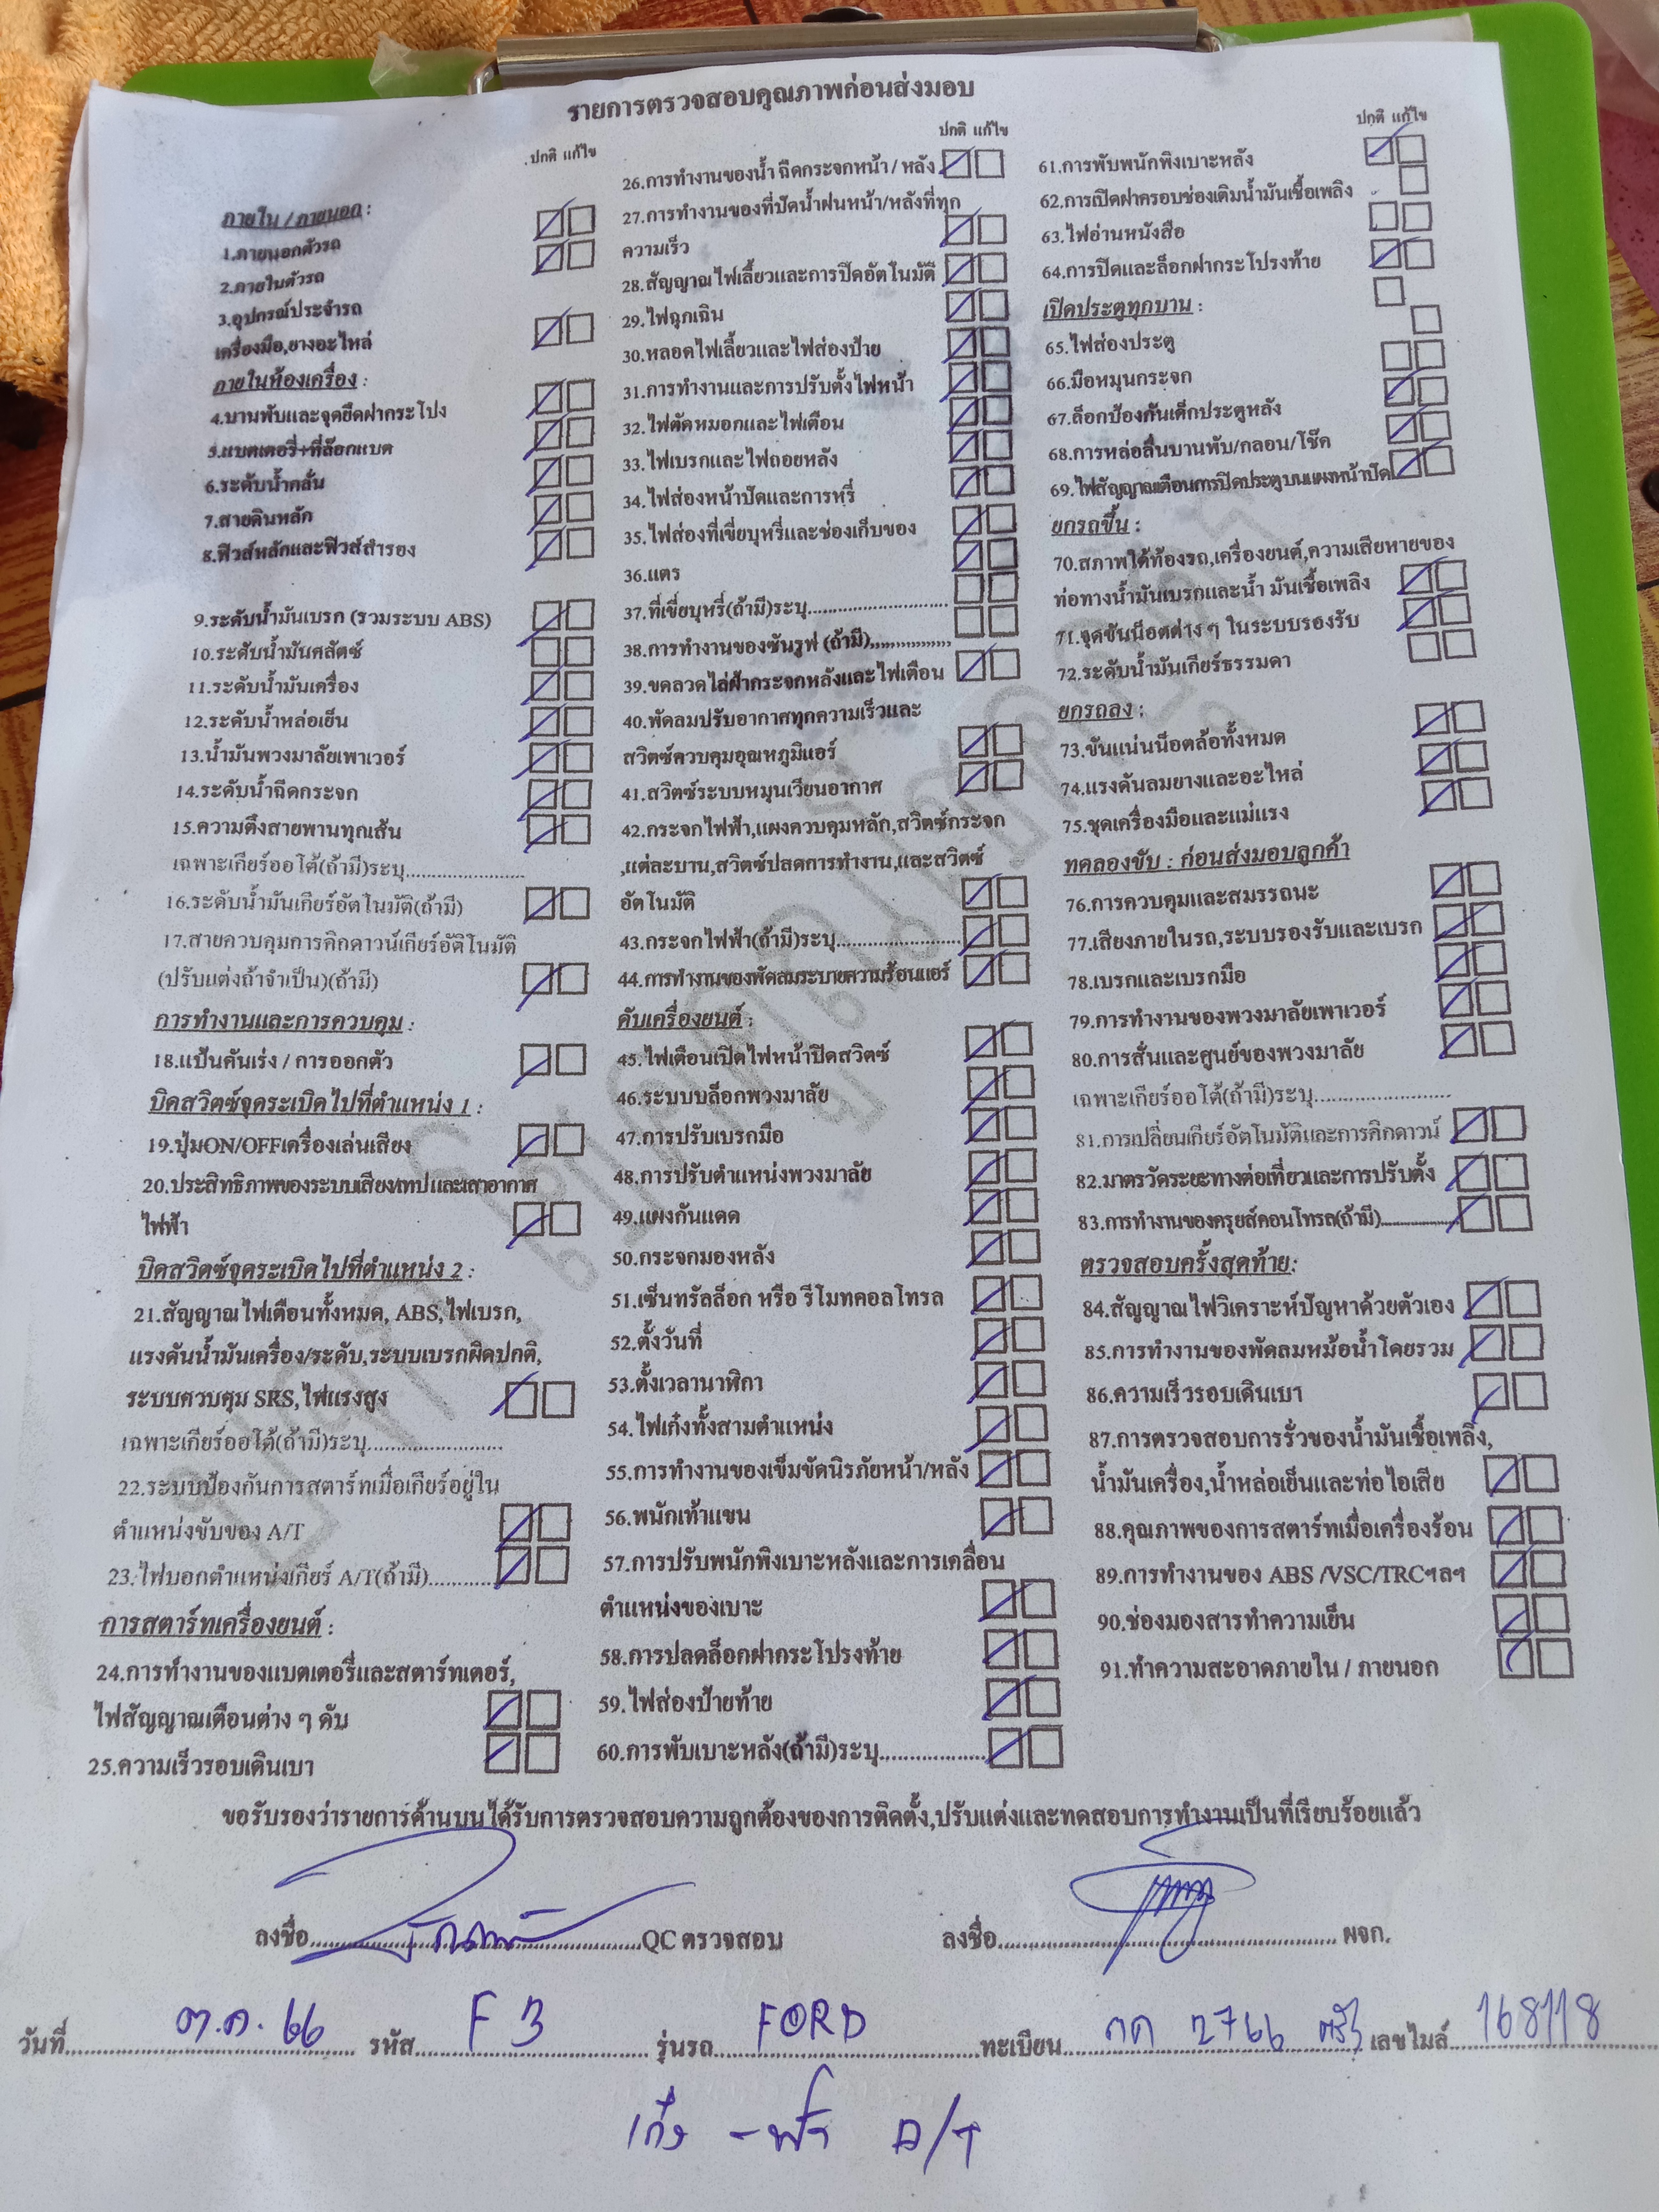 รายการตรวจสอบคุณภาพก่อนส่งมอบ
ปกติ แก้ไข
ภายใน / ภายนอก :
1.ภายนอกตัวรถ
2.ภายในตัวรถ
3.อุปกรณ์ประจำรถ
เครื่องมือ,ยางอะไหล่
ภายในห้องเครื่อง :
4.บานพับและจุดยึดฝากระโปง
5.แบตเตอรี่+ที่ล๊อกแบต
6.ระดับน้ำกลั่น
7.สายดินหลัก
8.ฟิวส์หลักและฟิวส์สำรอง
9.ระดับน้ำมันเบรก (รวมระบบ ABS)
10.ระดับน้ำมันคลัตซ์
11.ระดับน้ำมันเครื่อง
12.ระดับน้ำหล่อเย็น
13.น้ำมันพวงมาลัยเพาเวอร์
14.ระดับน้ำฉีดกระจก
15.ความตึงสายพานทุกเส้น
เฉพาะเกียร์ออโต้(ถ้ามี)ระบุ........................
16.ระดับน้ำมันเกียร์อัตโนมัติ(ถ้ามี)
17.สายควบคุมการคิกดาวน์เกียร์อัติโนมัติ
(ปรับแต่งถ้าจำเป็น)(ถ้ามี)
การทำงานและการควบคุม :
18.แป้นคันเร่ง / การออกตัว
บิดสวิตซ์จุดระเบิดไปที่ตำแหน่ง 1 :
19.ปุ่มON/OFFเครื่องเล่นเสียง
20.ประสิทธิภาพของระบบเสียง/เทป และเสาอากาศ
ไฟฟ้า
บิดสวิตซ์จุดระเบิดไปที่ตำแหน่ง 2 :
21.สัญญาณไฟเตือนทั้งหมด, ABS,ไฟเบรก,
แรงดันน้ำมันเครื่อง/ระดับ,ระบบเบรกผิดปกติ,
ระบบควบคุม SRS,ไฟแรงสูง
เฉพาะเกียร์ออโต้(ถ้ามี)ระบุ........................
22.ระบบป้องกันการสตาร์ทเมื่อเกียร์อยู่ใน
ตำแหน่งขับของ A/T
23.ไฟบอกตำแหน่งเกียร์ A/T(ถ้ามี)............
การสตาร์ทเครื่องยนต์ :
24.การทำงานของแบตเตอรี่และสตาร์ทเตอร์,
ไฟสัญญาณเตือนต่าง ๆ ดับ
25.ความเร็วรอบเดินเบา
ปกติ แก้ไข
26.การทำงานของน้ำ ฉีดกระจกหน้า / หลัง
27.การทำงานของที่ปัดน้ำฝนหน้า/หลังที่ทุก
ความเร็ว
28.สัญญาณไฟเลี้ยวและการปิดอัตโนมัติ
29.ไฟฉุกเฉิน
30.หลอดไฟเลี้ยวและไฟส่องป้าย
31.การทำงานและการปรับตั้งไฟหน้า
32.ไฟตัดหมอกและไฟเตือน
33.ไฟเบรกและไฟถอยหลัง
34.ไฟส่องหน้าปัดและการหรี่
35.ไฟส่องที่เขี่ยบุหรี่และช่องเก็บของ
36.แตร
37.ที่เขี่ยบุหรี่(ถ้ามี)ระบุ............................
38.การทำงานของซันรูฟ (ถ้ามี)................
39.ขดลวดไล่ฝ้ากระจกหลังและไฟเตือน
40.พัดลมปรับอากาศทุกความเร็วและ
สวิตซ์ควบคุมอุณหภูมิแอร์
41.สวิตซ์ระบบหมุนเวียนอากาศ
42.กระจกไฟฟ้า,แผงควบคุมหลัก,สวิตซ์กระจก
,แต่ละบาน,สวิตซ์ปลดการทำงาน,และสวิตซ์
อัตโนมัติ
43.กระจกไฟฟ้า(ถ้ามี)ระบุ.........................
44.การทำงานของพัดลมระบายความร้อนแอร์
ดับเครื่องยนต์ :
45.ไฟเตือนเปิดไฟหน้าปิดสวิตซ์
46.ระบบบล็อกพวงมาลัย
47.การปรับเบรกมือ
48.การปรับตำแหน่งพวงมาลัย
49.แผงกันแดด
50.กระจกมองหลัง
51.เซ็นทรัลล็อก หรือ รีโมทคอลโทรล
52.ตั้งวันที่
53.ตั้งเวลานาฬิกา
54.ไฟเก๋งทั้งสามตำแหน่ง
55.การทำงานของเข็มขัดนิรภัยหน้า/หลัง
56.พนักเท้าแขน
57.การปรับพนักพิงเบาะหลังและการเคลื่อน
ตำแหน่งของเบาะ
58.การปลดล็อกฝากระโปรงท้าย
59.ไฟส่องป้ายท้าย
60.การพับเบาะหลัง(ถ้ามี)ระบุ....................
ปกติ แก้ไข
61.การพับพนักพิงเบาะหลัง
62.การเปิดฝาครอบช่องเติมน้ำมันเชื้อเพลิง
63.ไฟอ่านหนังสือ
64.การปิดและล็อกฝากระโปรงท้าย
เปิดประตูทุกบาน :
65.ไฟส่องประตู
66.มือหมุนกระจก
67.ล็อกป้องกันเด็กประตูหลัง
68.การหล่อลื่นบานพับ/กลอน/โช๊ค
69.ไฟสัญญาณเตือนการปิดประตูบนแผงหน้าปัด
ยกรถขึ้น :
70.สภาพใต้ท้องรถ,เครื่องยนต์,ความเสียหายของ
ท่อทางน้ำมันเบรกและน้ำ มันเชื้อเพลิง
71.จุดขันน็อตต่าง ๆ ในระบบรองรับ
72.ระดับน้ำมันเกียร์ธรรมดา
ยกรถลง :
73.ขันแน่นน็อตล้อทั้งหมด
74.แรงดันลมยางและอะไหล่
75.ชุดเครื่องมือและแม่แรง
ทดลองขับ : ก่อนส่งมอบลูกค้า
76.การควบคุมและสมรรถนะ
77.เสียงภายในรถ,ระบบรองรับและเบรก
78.เบรกและเบรกมือ
79.การทำงานของพวงมาลัยเพาเวอร์
80.การสั่นและศูนย์ของพวงมาลัย
เฉพาะเกียร์ออโต้(ถ้ามี)ระบุ............................
81.การเปลี่ยนเกียร์อัตโนมัติและการคิกดาวน์
82.มาตรวัดระยะทางต่อเที่ยวและการปรับตั้ง
83.การทำงานของครุยส์คอนโทรล(ถ้ามี)....................
ตรวจสอบครั้งสุดท้าย:
84.สัญญาณไฟวิเคราะห์ปัญหาด้วยตัวเอง
85.การทำงานของพัดลมหม้อน้ำโดยรวม
86.ความเร็วรอบเดินเบา
87.การตรวจสอบการรั่วของน้ำมันเชื้อเพลิง,
น้ำมันเครื่อง,น้ำหล่อเย็นและท่อไอเสีย
88.คุณภาพของการสตาร์ทเมื่อเครื่องร้อน
89.การทำงานของ ABS /VSC/TRCฯลฯ
90.ช่องมองสารทำความเย็น
91.ทำความสะอาดภายใน / ภายนอก
ขอรับรองว่ารายการด้านบนได้รับการตรวจสอบความถูกต้องของการติดตั้ง,ปรับแต่งและทดสอบการทำงานเป็นที่เรียบร้อยแล้ว
ลงชื่อ..................QC ตรวจสอบ ลงชื่อ.................. ผจก.
วันที่ ต.ค. 66 รหัส F 3 รุ่นรถ FORD ทะเบียน กค 2766 ตรัง เลขไมล์ 168118
เก๋ง - ฟ้า A/T